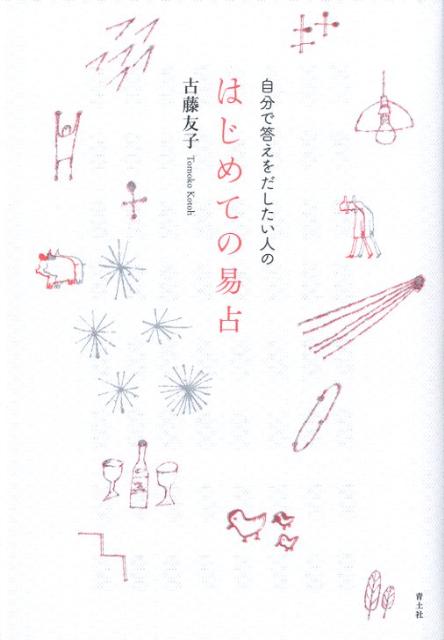 自分で答えをだしたい人の
はじめての易占
古藤友子 Tomoko Kotoh
青土社